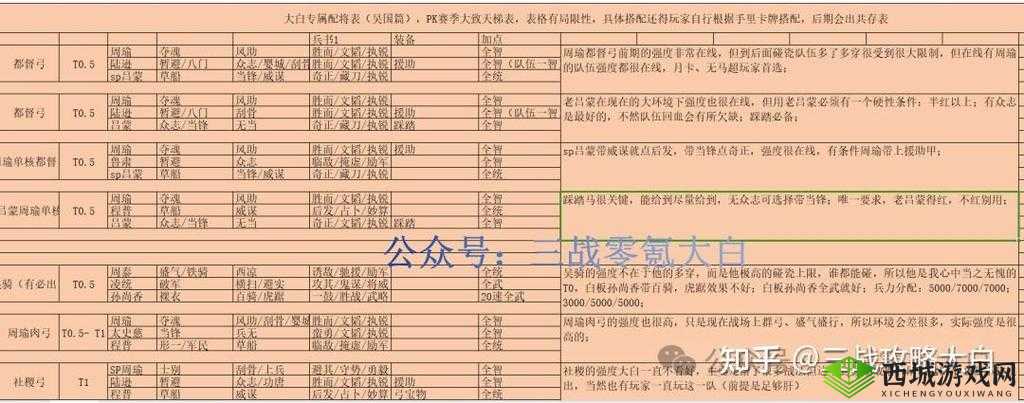 大白专属配将表（吴国篇），PK赛季大致天梯表，表格有局限性，具体搭配还得玩家自行根据手里卡牌搭配，后期会出共存表
兵书1 装备 加点
都督弓 T0.5
周瑜 夺魂 风助 胜而/文韬/执锐 全智
陆逊 暂避/八门 众志/婴城/刮骨 胜而/文韬/执锐 援助 全智（队伍一智
sp吕蒙 草船 当锋/威谋 奇正/藏刀/执锐 全统
周瑜都督弓前期的强度非常在线，但到后面碰瓷队伍多了多穿很受到很大限制，但在线有周瑜的队伍强度都很在线，月卡、无马超玩家首选；
都督弓 T0.5
周瑜 夺魂 风助 胜而/文韬/执锐 全智
陆逊 暂避/八门 刮骨 胜而/文韬/执锐 援助 全智（队伍一智
吕蒙 众志/当锋 无当 奇正/藏刀/执锐 踩踏 全智
老吕蒙在现在的大环境下强度也很在线，但用老吕蒙必须有一个硬性条件：半红以上；有众志是最好的，不然队伍回血会有所欠缺；踩踏必备；
周瑜单核都督 T0.5
周瑜 夺魂 风助 胜而/文韬/执锐 援助 全智
鲁肃 暂避 众志 临敌/掩虚/励军 全智
sp吕蒙 草船 当锋/威谋 奇正/藏刀/执锐 全统
sp吕蒙带威谋就点后发，带当锋点奇正，强度很在线，有条件周瑜带上援助甲；
吕蒙周瑜单核 T0.5
周瑜 夺魂 风助 胜而/文韬/执锐 全智
程普 草船 威谋 后发/占卜/妙算 全统
吕蒙 众志/当锋 无当 奇正/藏刀/执锐 踩踏 全智
踩踏马很关键，能给到尽量给到，无众志可选择带当锋；唯一要求，老吕蒙得红，不红别用；
公众号：三战零氪大白
骑（有必出 T0.5
周泰 盛气/铁骑 西凉 诱敌/驰援/励军 全统
凌统 破军 横扫/避实 攻其/鬼谋/将威 全统
孙尚香 裸衣 百骑/虎踞 一鼓/胜战/武略 20速全武
吴骑的强度不在于他的多穿，而是他极高的碰瓷上限，谁都能碰，所以他是我心中当之无愧的T0，白板孙尚香带百骑，虎踞效果不好；白板孙尚香全武就好；兵力分配：5000/7000/7000；3000/5000/5000；
周瑜肉弓 T0.5- T1
周瑜 夺魂 风助/刮骨/婴城 胜而/文韬/执锐 全智
太史慈 当锋 兵无 蛮勇/文韬/执锐 全统
程普 形一/军民 草船 励军/文韬/执锐 全统
周瑜肉弓的强度也很高，只是现在战场上群弓、盛气盛行，所以环境会差很多，实际强度是很高的；
社稷弓 T1
SP周瑜 士别 刮骨/上兵 避其/守势/勇毅 全智
陆逊 暂避 众志/功唐 胜而/文韬/执锐 援助 全智
程普 草船 威谋 励军/文韬/执锐 弓宝物 全统
社稷的强度大白一直
出，当然也有玩家一直玩这一队（前提是足够肝）
知乎 @三战攻略大白
西城游戏网
XICHENGYOUXIWANG